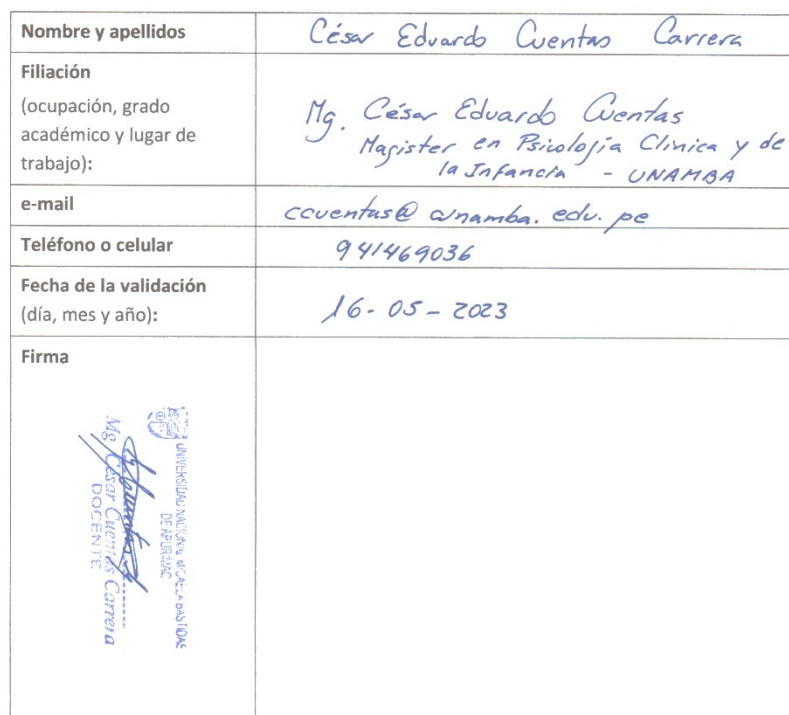 Nombre y apellidos
César Eduardo Cuentas Carrera
Filiación
(ocupación, grado
académico y lugar de
trabajo):
Mg. César Eduardo Cuentas
Magister en Psicología Clínica y de
la Infancia - UNAMBA
e-mail
ccuentas@unamba.edu.pe
Teléfono o celular
941469036
Fecha de la validación
(día, mes y año):
16-05-2023
Firma
UNIVERSIDAD NACIONAL MICAELA BASTIDAS
DE APURIMAC
Mg. César Cuentas Carrera
DOCENTE